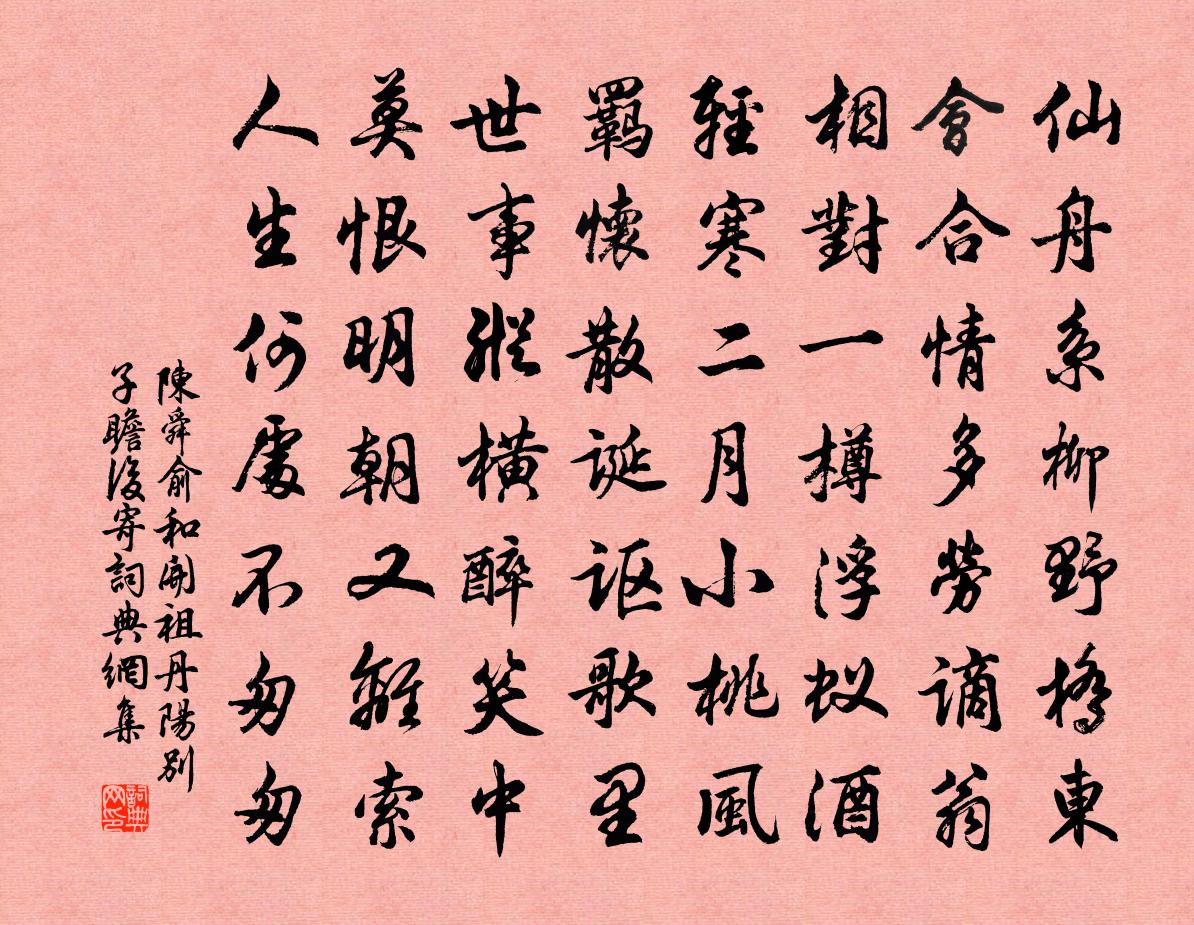 仙舟系柳野橋東
會合情多勞謫翁
相對一樽浮蚁酒
輕寒二月小桃風
羈懷散誕讴歌里
世事縱橫醉笑中
莫恨明朝又離索
人生何處不匆匆
陳舜俞和開祖丹陽別
子瞻後寄詞典網集
詞典網印